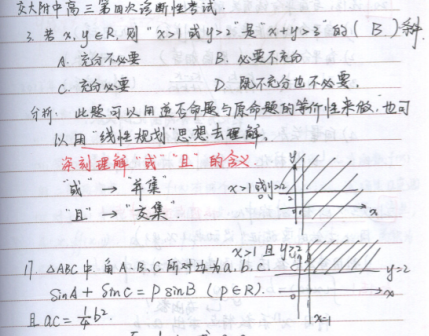 交大附中高三第四次诊断性考试.
3. 若x, y∈R, 则 "x>1 或 y>2" 是 "x+y>3" 的 ( B ) 条件.
A. 充分不必要 B. 必要不充分
C. 充分必要 D. 既不充分也不必要.
分析: 此题可以用逆否命题与原命题的等价性来做. 也可
以用 "线性规划" 思想去理解.
深刻理解 "或" "且" 的含义.
"或" → "并集" x>1 或 y>2
"且" → "交集".
y
2
0
x
x>1 且 y>2
y=2
x
x=1
17. △ABC中. 角A.B.C所对边为a.b.c.
sinA + sinC = p sinB (p∈R).
且 ac = 1/4 b².